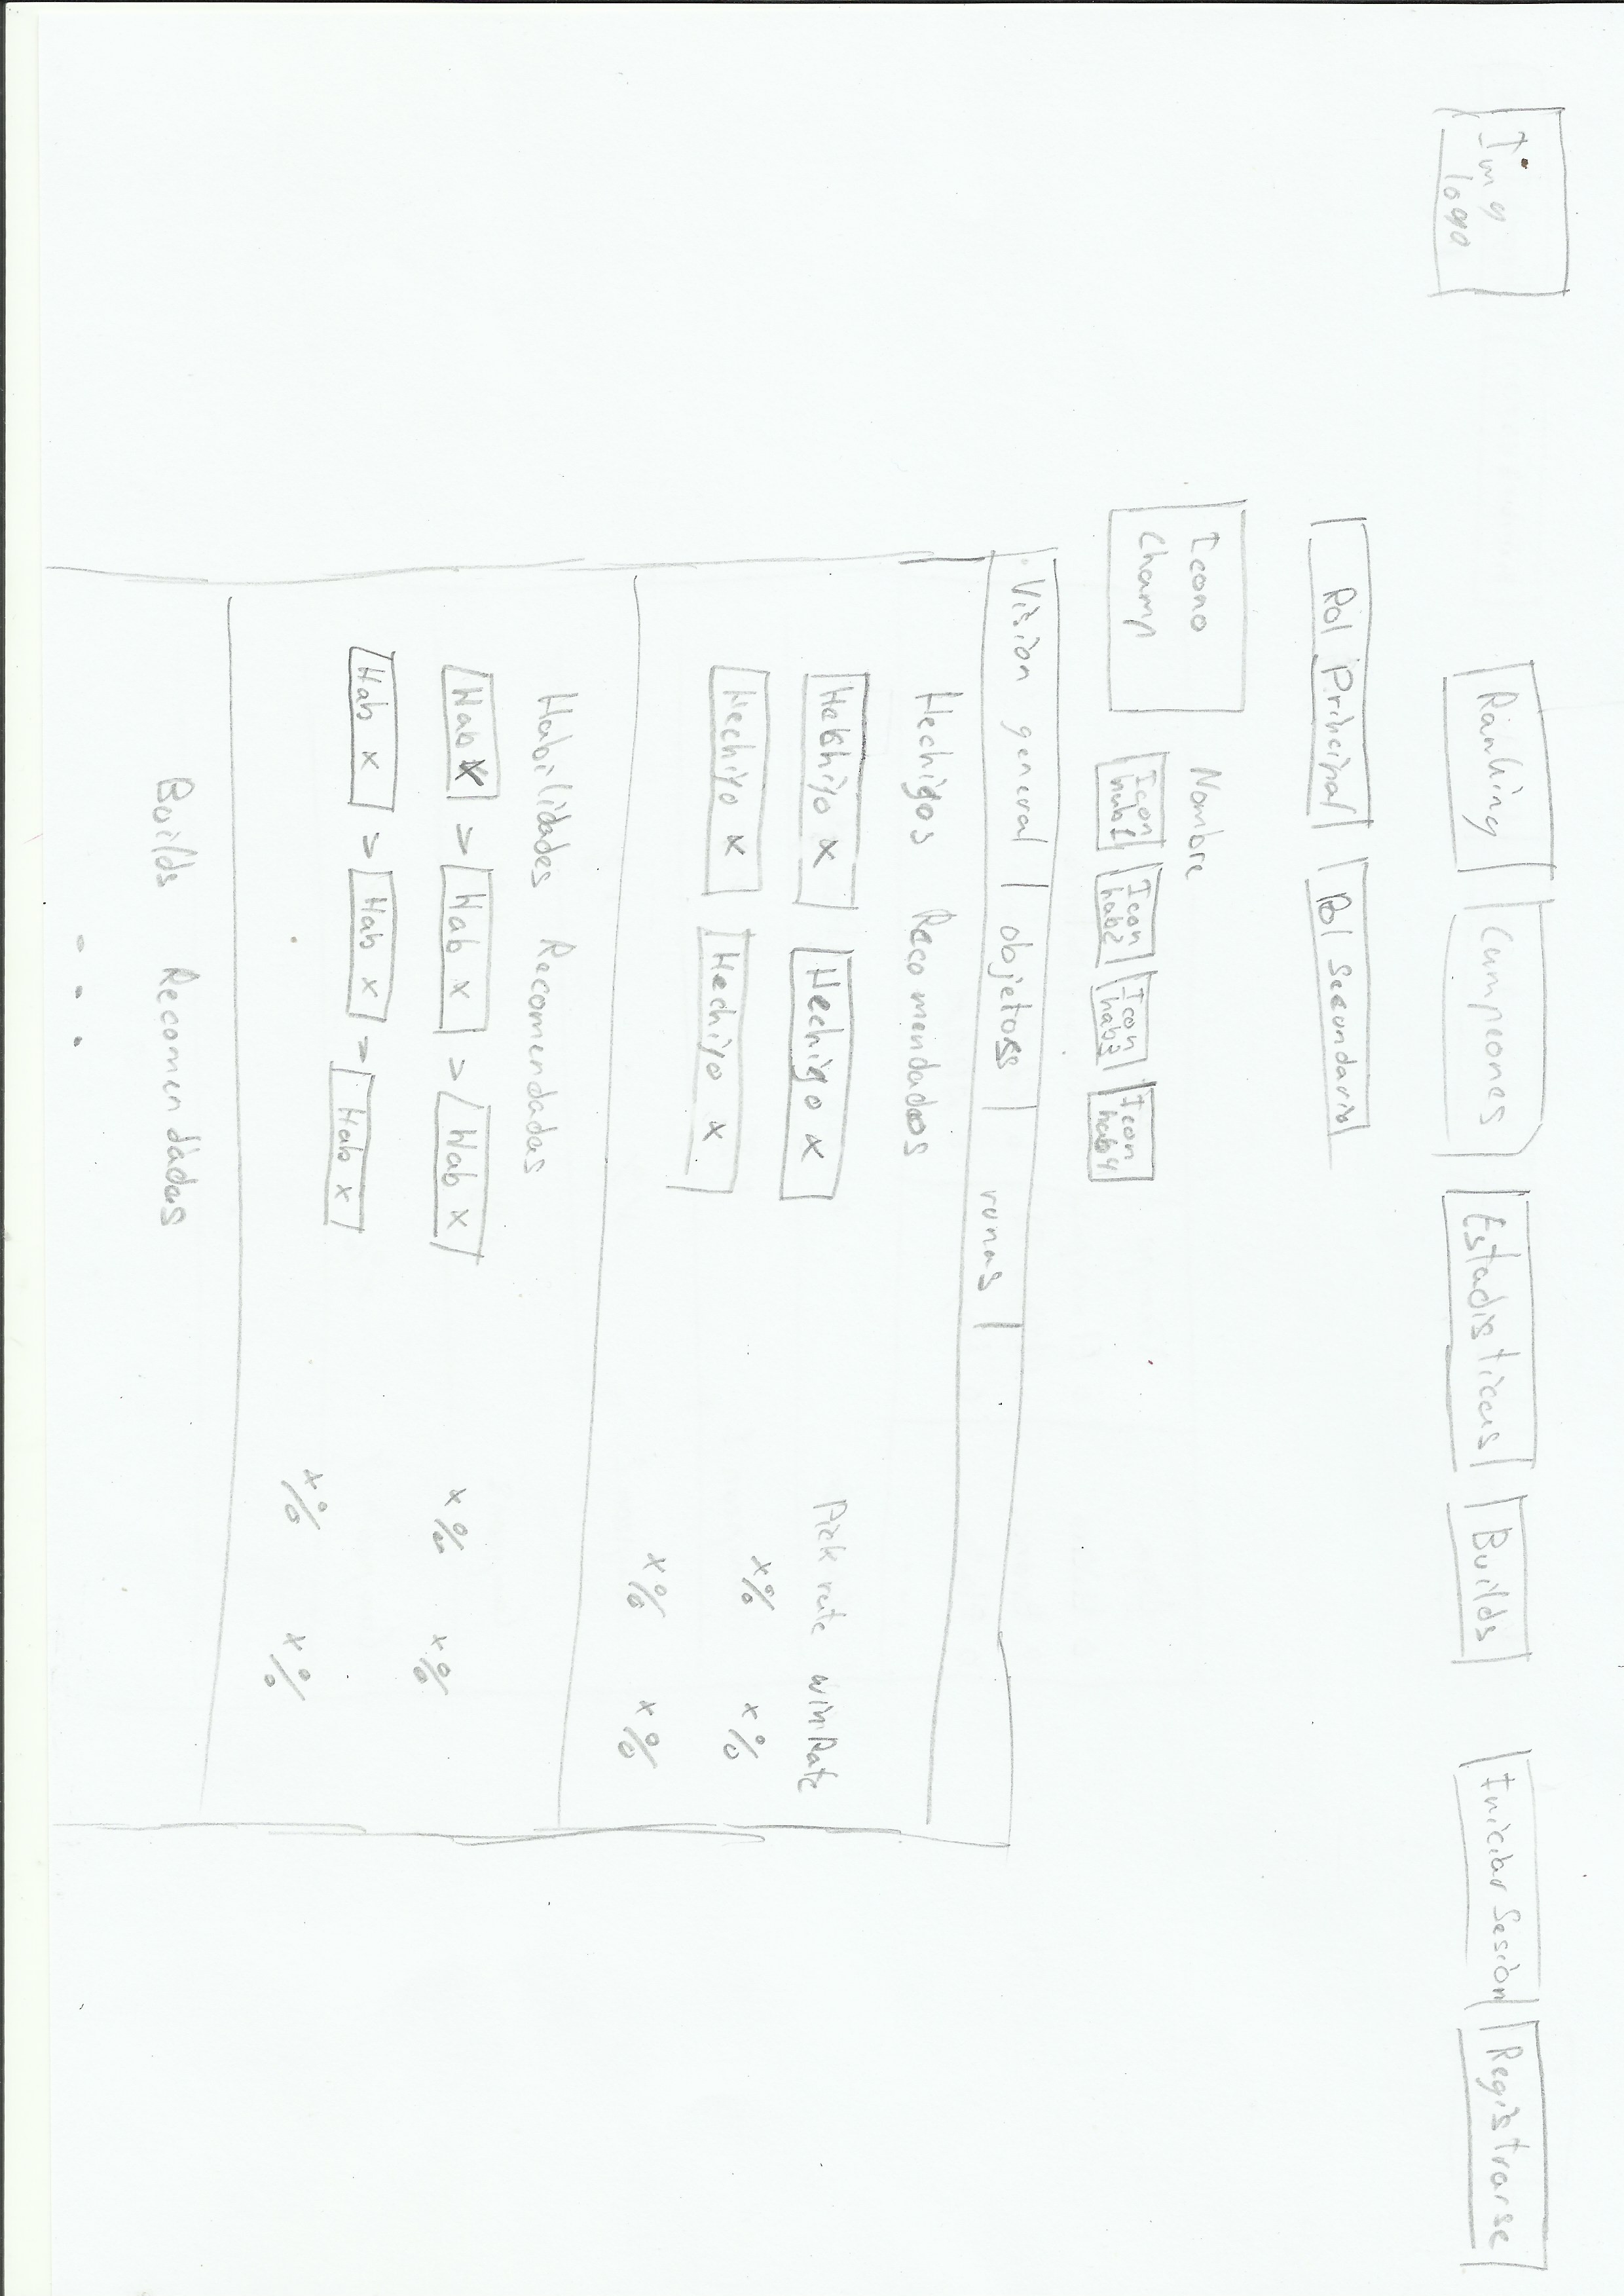 Img
logo
Ranking Campeones Estadisticas Builds Iniciar Sesión Registrarse
Rol Principal Rol Secundario
Icono
Champ
Nombre
Icon
hab1
Icon
hab2
Icon
hab3
Icon
hab4
Vision general objetos runas
Hechizos Recomendados
Pick rate winRate
Hechizo x Hechizo x x% x%
Hechizo x Hechizo x x% x%
Habilidades Recomendadas
Hab x > Hab x > Hab x x% x%
Hab x > Hab x > Hab x x% x%
Builds Recomendadas
...